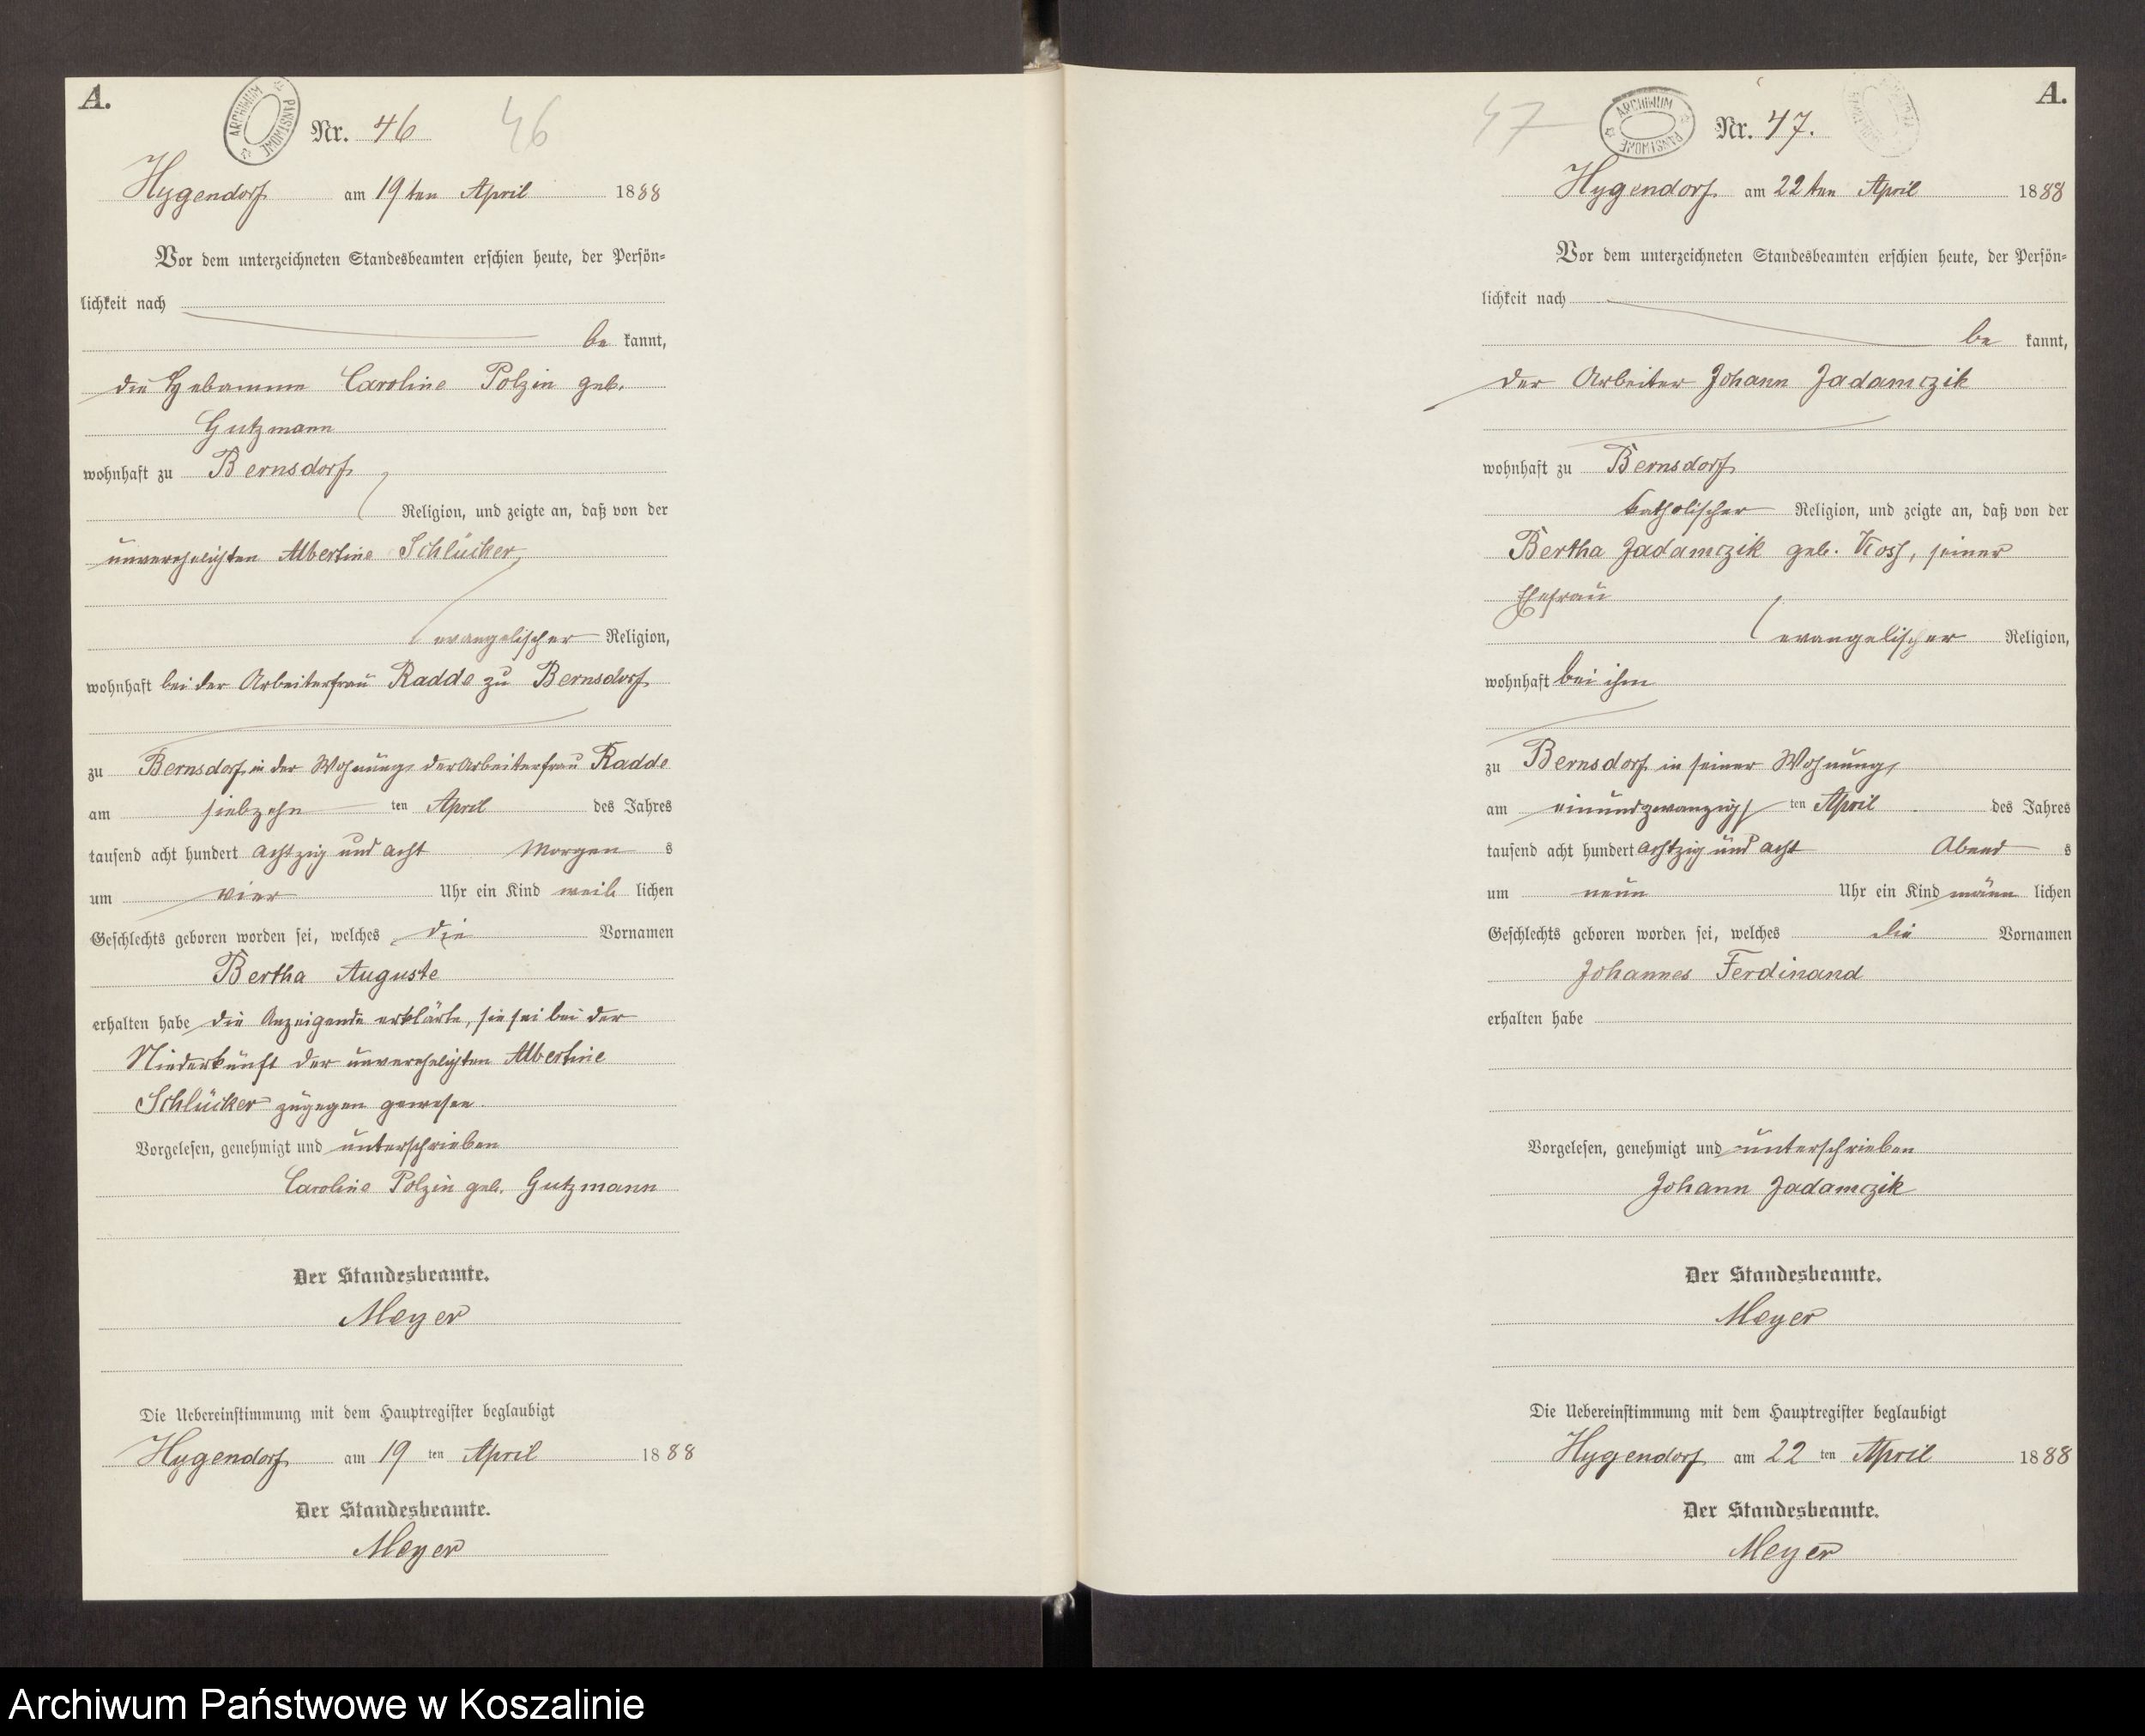 A.
ARCHIWUM PAŃSTWOWE
Nr. 46
46
Hygendorf am 19ten April 1888
Vor dem unterzeichneten Standesbeamten erschien heute, der Persön-
lichkeit nach
be kannt,
die Hebamme Caroline Polzin geb.
Gutzmann
wohnhaft zu Bernsdorf
Religion, und zeigte an, daß von der
unverehelichten Albertine Schlücker,
evangelischer Religion,
wohnhaft bei der Arbeiterfrau Radde zu Bernsdorf
zu Bernsdorf in der Wohnung der Arbeiterfrau Radde
am siebzehn ten April des Jahres
tausend acht hundert achtzig und acht Morgen s
um vier Uhr ein Kind weib lichen
Geschlechts geboren worden sei, welches die Vornamen
Bertha Auguste
erhalten habe die Anzeigende erklärte, sie sei bei der
Niederkunft der unverehelichten Albertine
Schlücker zugegen gewesen.
Vorgelesen, genehmigt und unterschrieben
Caroline Polzin geb. Gutzmann
Der Standesbeamte.
Meyer
Die Uebereinstimmung mit dem Hauptregister beglaubigt
Hygendorf am 19 ten April 1888
Der Standesbeamte.
Meyer
A.
47
ARCHIWUM PAŃSTWOWE
Nr. 47.
Hygendorf am 22ten April 1888
Vor dem unterzeichneten Standesbeamten erschien heute, der Persön-
lichkeit nach
be kannt,
der Arbeiter Johann Jadamczik
wohnhaft zu Bernsdorf
katholischer Religion, und zeigte an, daß von der
Bertha Jadamczik geb. Kosz, seiner
Ehefrau
evangelischer Religion,
wohnhaft bei ihm
zu Bernsdorf in seiner Wohnung
am einundzwanzigs ten April des Jahres
tausend acht hundert achtzig und acht Abend s
um neun Uhr ein Kind männ lichen
Geschlechts geboren worden sei, welches die Vornamen
Johannes Ferdinand
erhalten habe
Vorgelesen, genehmigt und unterschrieben
Johann Jadamczik
Der Standesbeamte.
Meyer
Die Uebereinstimmung mit dem Hauptregister beglaubigt
Hygendorf am 22 ten April 1888
Der Standesbeamte.
Meyer
Archiwum Państwowe w Koszalinie